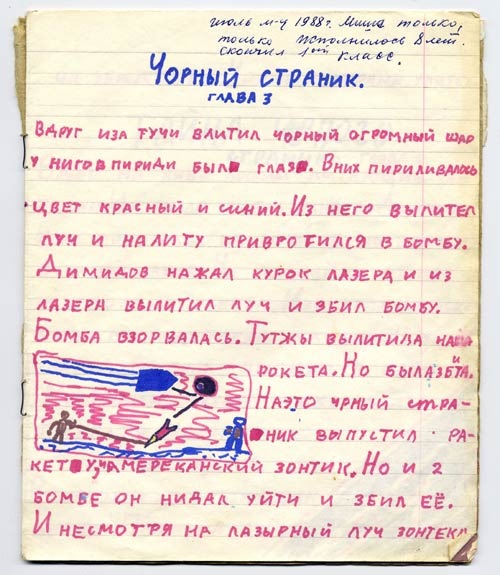 июль м-ц 1988г. Миша только,
только исполнилось 8 лет.
скончил 1ый класс.
ЧОРНЫЙ СТРАНИК.
ГЛАВА 3
ВДРУГ ИЗА ТУЧИ ВЛИТИЛ ЧОРНЫЙ ОГРОМНЫЙ ШАР
У НИГО ВПИРИДИ БЫЛО ГЛАЗО. В НИХ ПИРИЛИВАЛОСЬ
ЦВЕТ КРАСНЫЙ И СИНИЙ. ИЗ НЕГО ВЫЛИТЕЛ
ЛУЧ И НАЛИТУ ПРИВРОТИЛСЯ В БОМБУ.
ДИМИДОВ НАЖАЛ КУРОК ЛАЗЕРА И ИЗ
ЛАЗЕРА ВЫЛИТИЛ ЛУЧ И ЗБИЛ БОМБУ.
БОМБА ВЗОРВАЛАСЬ. ТУТЖЫ ВЫЛИТИЛА НАША
РОКЕТА. НО БЫЛА ЗБИТА.
НАЭТО ЧРНЫЙ СТРА-
НИК ВЫПУСТИЛ РА-
КЕТУ, "АМЕРЕКАНСКИЙ ЗОНТИК. НО И 2
БОМБЕ ОН НИДАЛ УЙТИ И ЗБИЛ ЕЁ.
И НЕСМОТРЯ НА ЛАЗЫРНЫЙ ЛУЧ ЗОНТЕКА